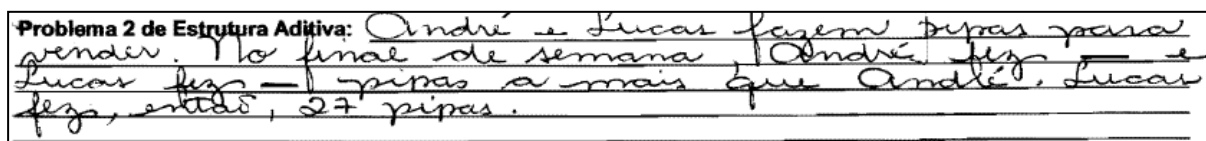 Problema 2 de Estrutura Aditiva: André e Lucas fazem pipas para
vender. No final de semana, André fez — e
Lucas fez — pipas a mais que André. Lucas
fez, então, 27 pipas.